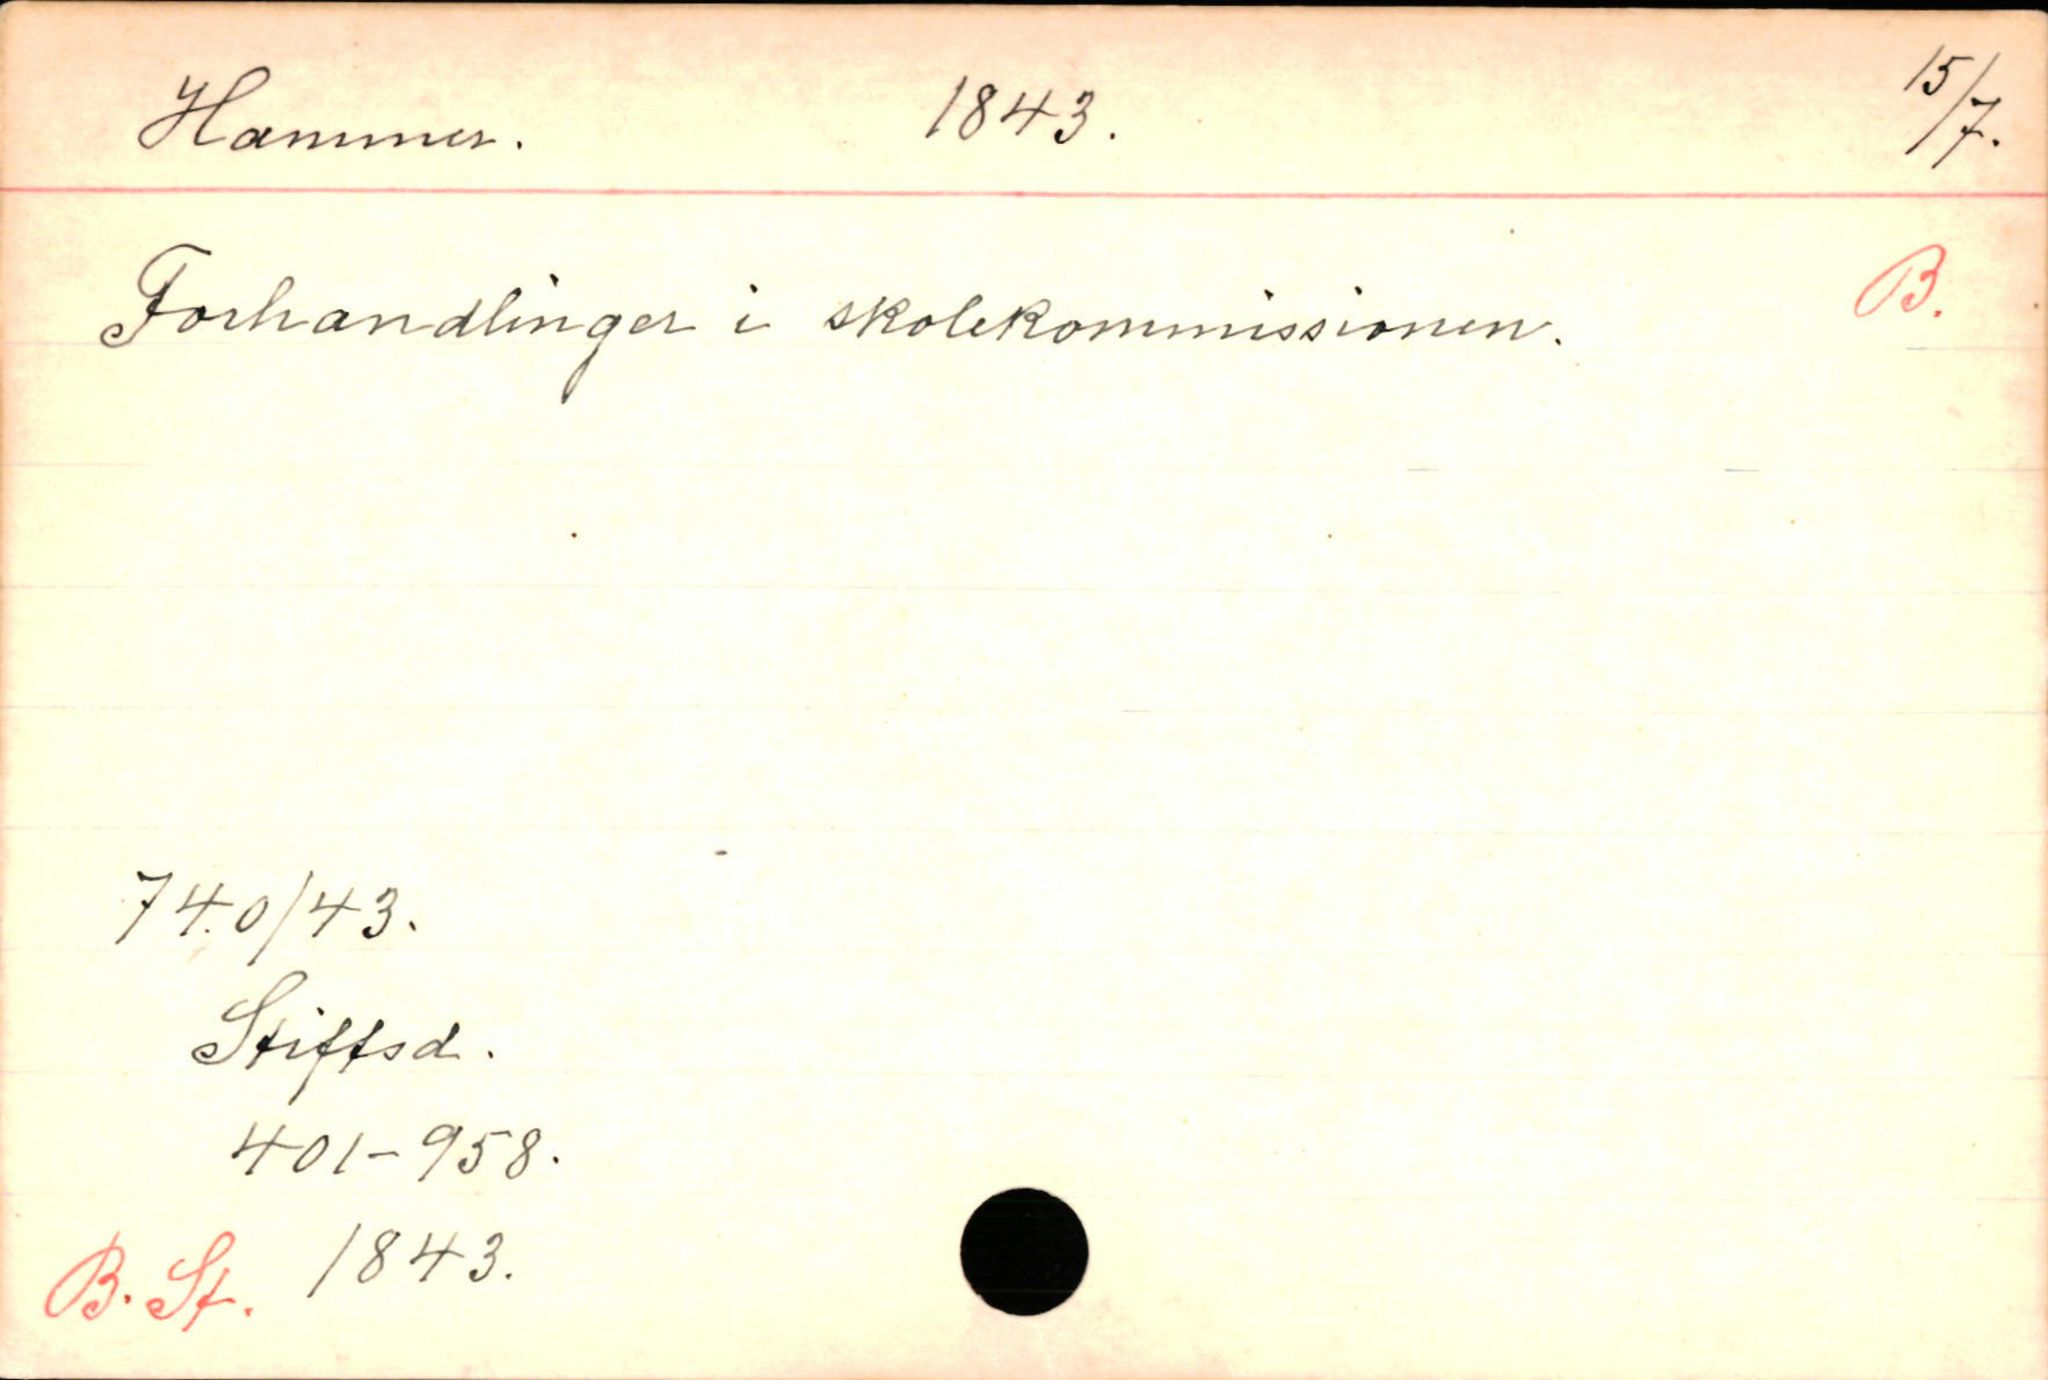 Hammer. 1843. 15/7.
Forhandlinger i skolekommissionen. B.
740/43.
Stiftsd.
401-958.
B. St. 1843.